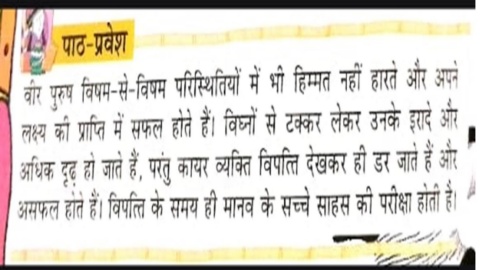 पाठ-प्रवेश
वीर पुरुष विषम-से-विषम परिस्थितियों में भी हिम्मत नहीं हारते और अपने
लक्ष्य की प्राप्ति में सफल होते हैं। विघ्नों से टक्कर लेकर उनके इरादे और
अधिक दृढ़ हो जाते हैं, परंतु कायर व्यक्ति विपत्ति देखकर ही डर जाते हैं और
असफल होते हैं। विपत्ति के समय ही मानव के सच्चे साहस की परीक्षा होती है।